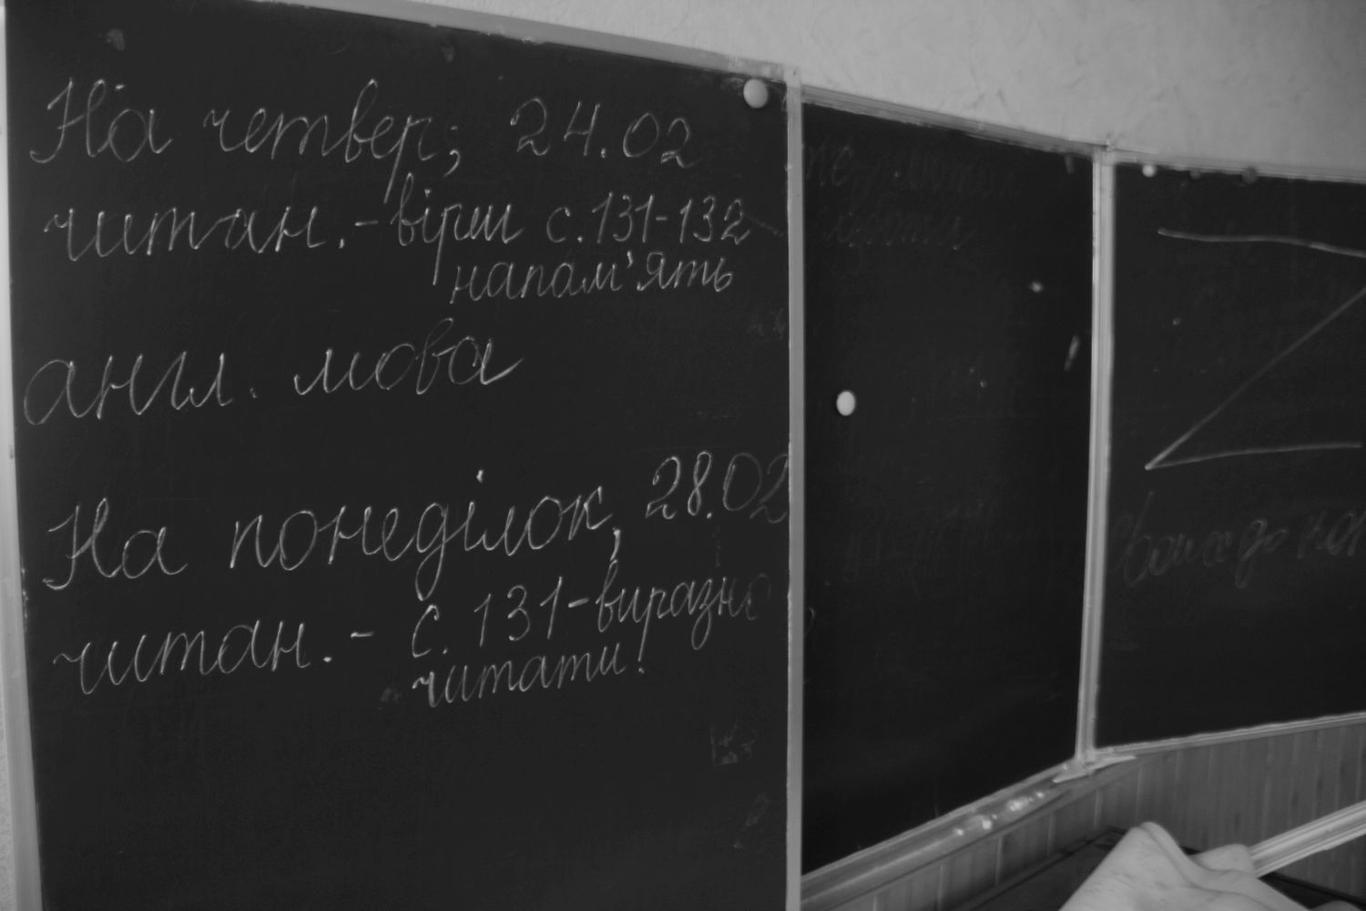 На четвер; 24.02
читан.-вірш с.131-132
напам'ять
англ. мова
На понеділок, 28.02
читан.- с. 131-виразно
читати!